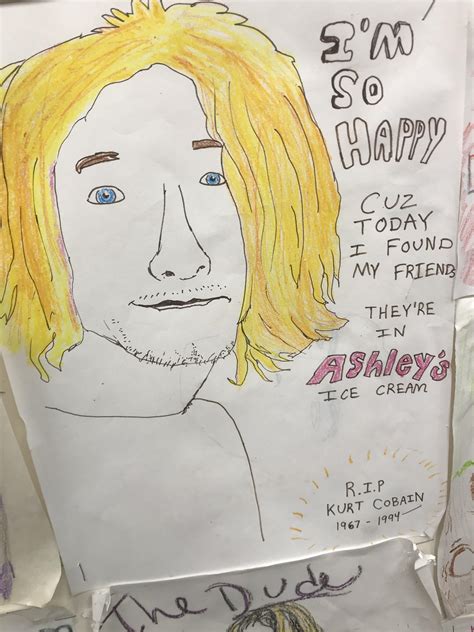 I'M
SO
HAPPY
CUZ
TODAY
I FOUND
MY FRIENDS
THEY'RE
IN
Ashley's
ICE CREAM
R.I.P
KURT COBAIN
1967 - 1994
The Dude